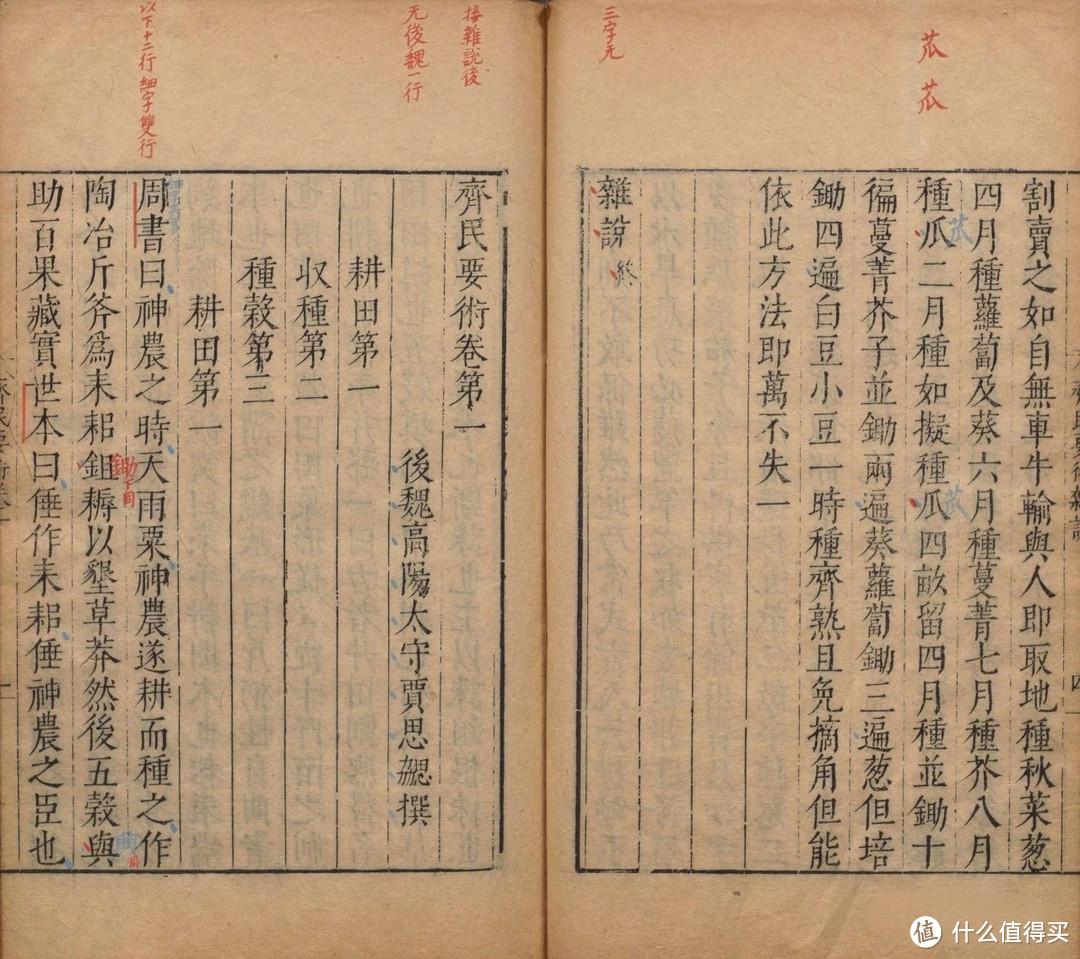 苽
苽
三字元
割賣之如自無車牛輸與人即取地種秋菜葱
四月種蘿蔔及葵六月種蔓菁七月種芥八月
種瓜二月種如擬種瓜四畝留四月種並鋤十
徧蔓菁芥子並鋤兩遍葵蘿蔔鋤三遍葱但培
鋤四遍白豆小豆一時種齊熟且免摘角但能
依此方法即萬不失一
雜說終
四
接雜說後
元後魏一行
以下十二行細字雙行
齊民要術卷第一
後魏高陽太守賈思勰撰
耕田第一
収種第二
種穀第三
耕田第一
周書曰神農之時天雨粟神農遂耕而種之作
陶冶斤斧爲耒耜鉏耨以墾草莽然後五穀與
鋤下同
助百果藏實世本曰倕作耒耜倕神農之臣也
值 什么值得买